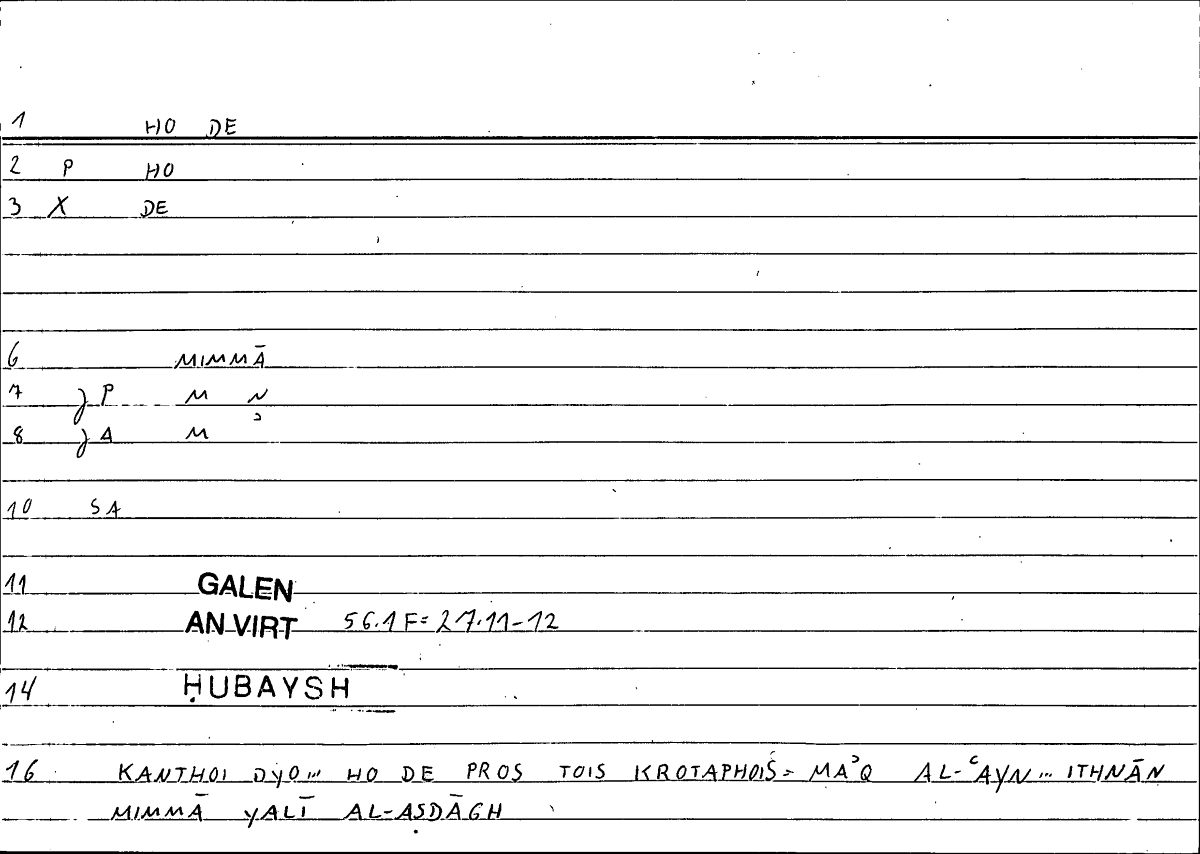 1 HO DE
2 P HO
3 X DE
6 MIMMĀ
7 P M N
8 A M
10 SA
11 GALEN
12 AN VIRT 56.1 F = 27.11-12
14 ḤUBAYSH
16 KANTHOI DYO... HO DE PROS TOIS KROTAPHOIS = MAʾQ AL-ʿAYN... ITHNĀN
MIMMĀ YALĪ AL-AṢDĀGH